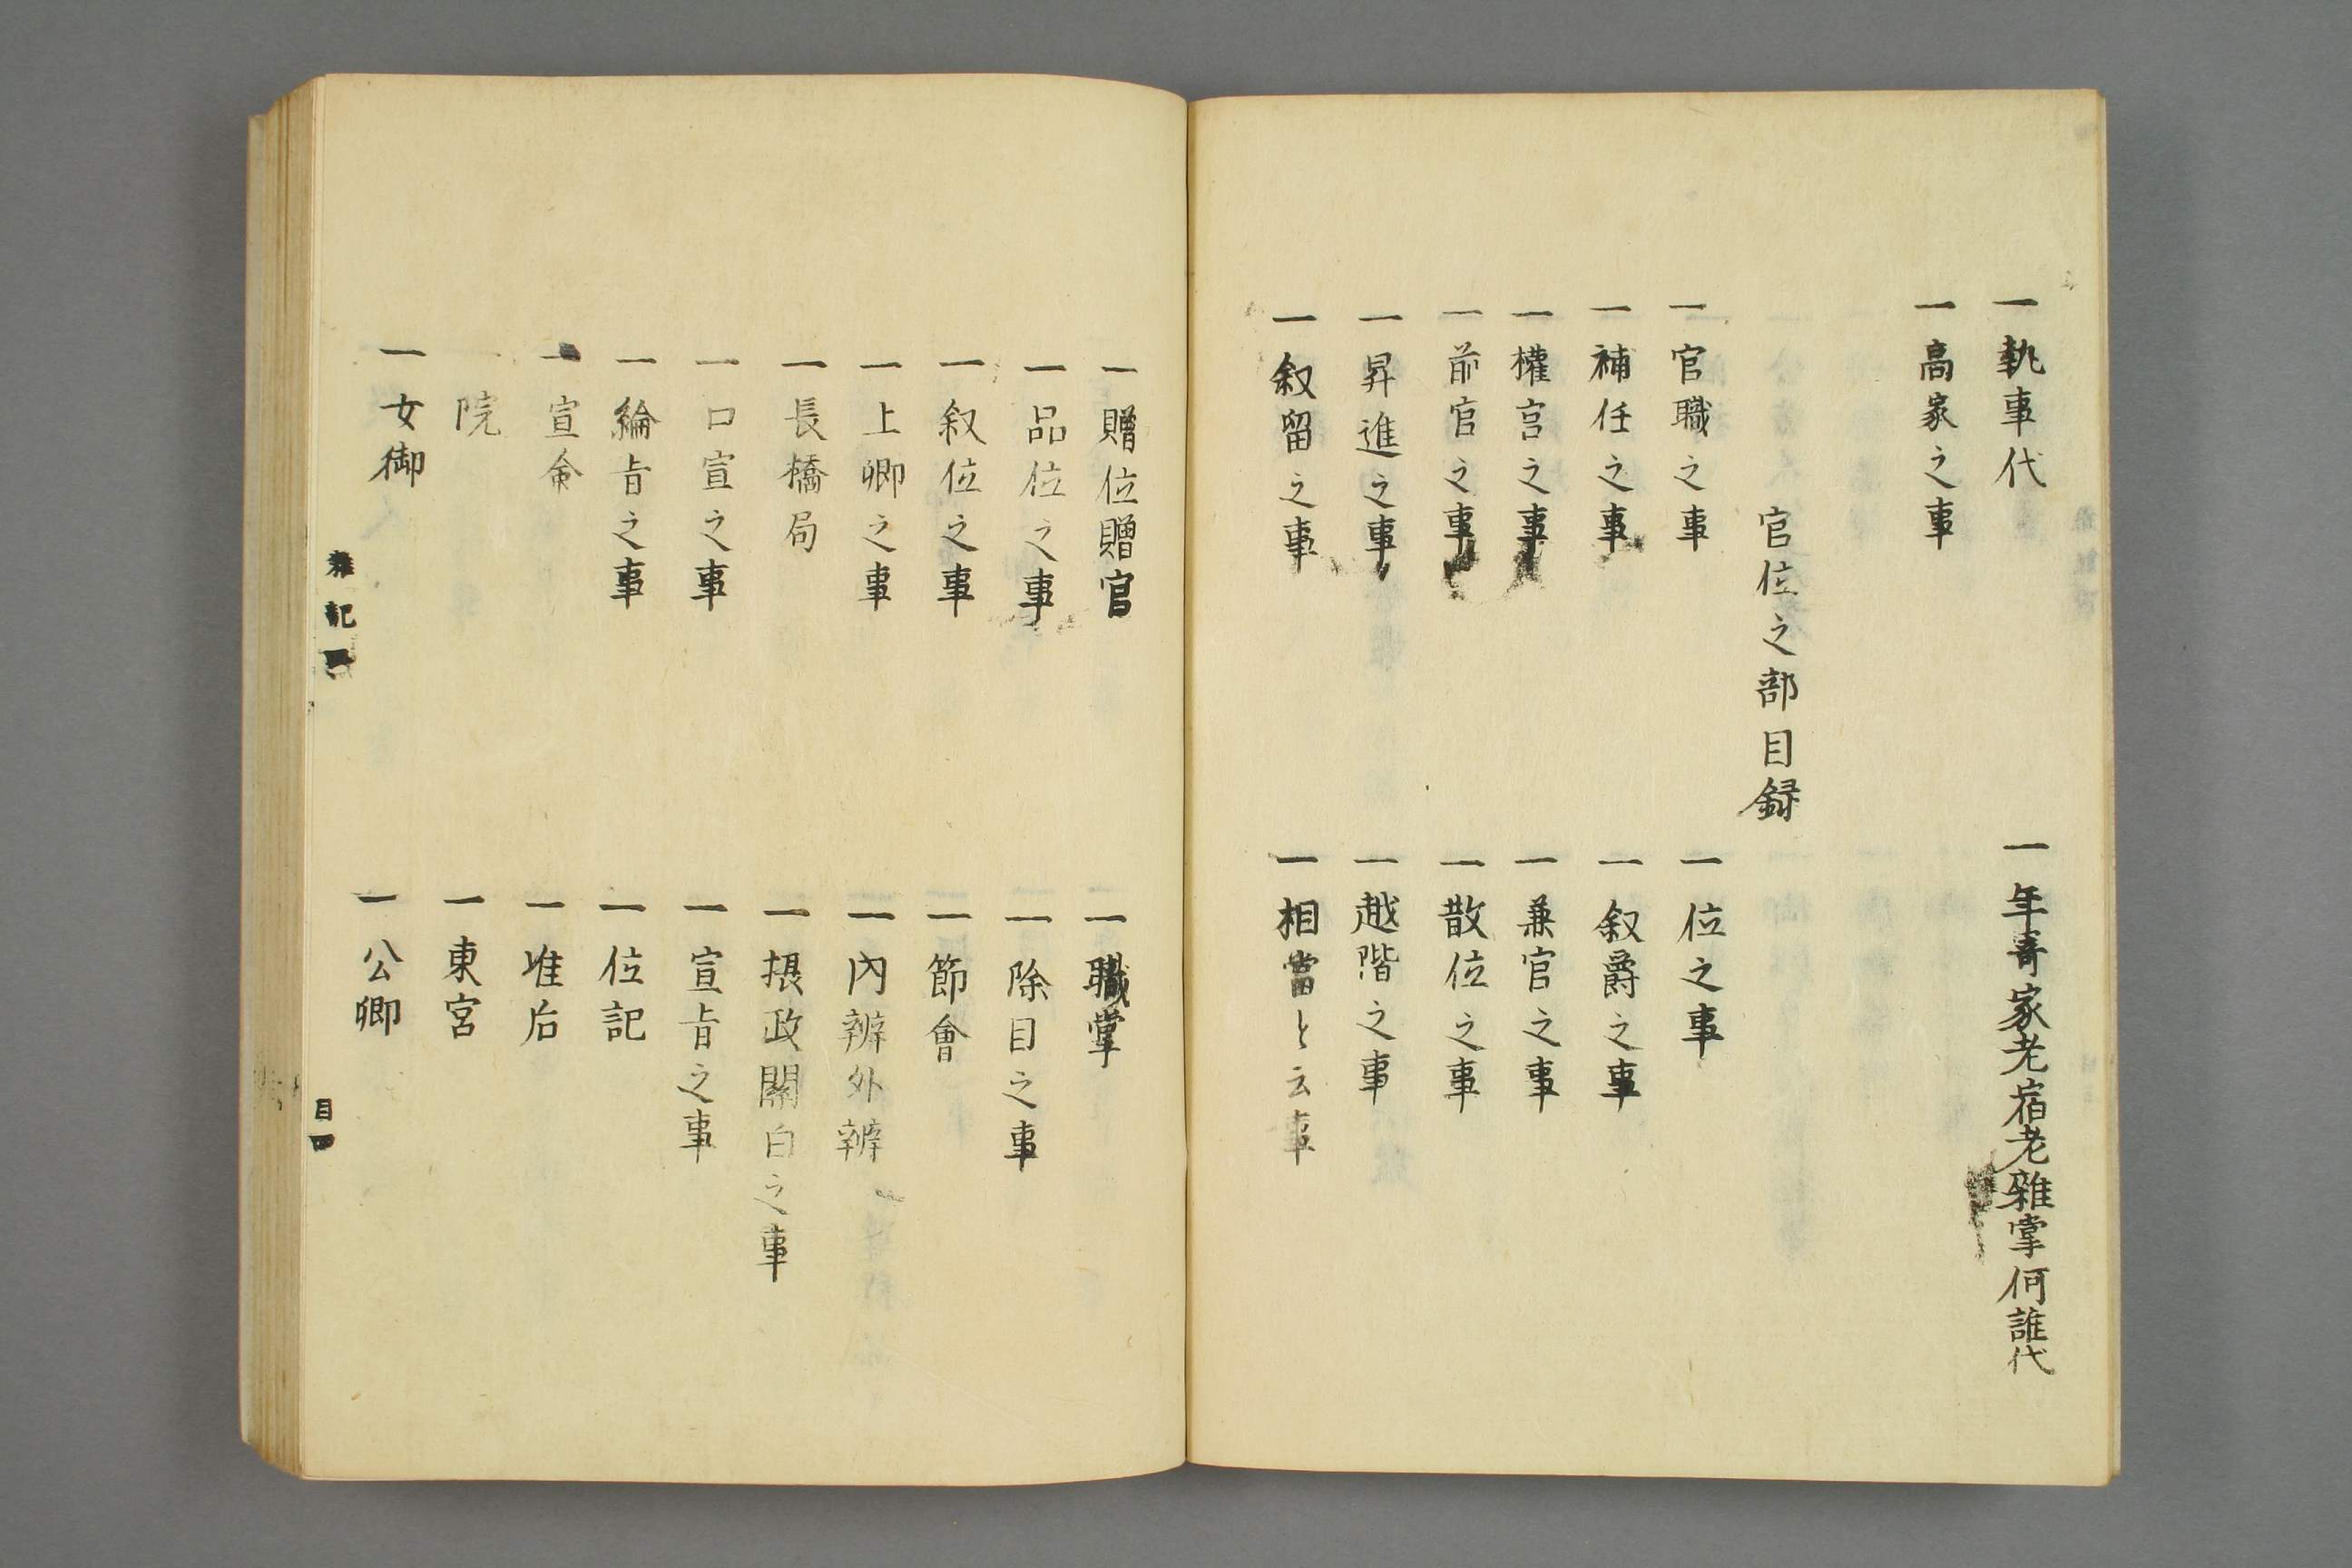 一執事代
一年寄家老宿老雜掌何誰代
一高家之事
官位之部目録
一官職之事
一位之事
一補任之事
一叙爵之事
一權官之事
一兼官之事
一前官之事
一散位之事
一昇進之事
一越階之事
一叙留之事
一相當と云事
一贈位贈官
一職掌
一品位之事
一除目之事
一叙位之事
一節會
一上卿之事
一內辨外辨
一長橋局
一摂政關白之事
一口宣之事
一宣旨之事
一綸旨之事
一位記
一宣命
一准后
一院
一東宮
一女御
一公卿
雜記
目